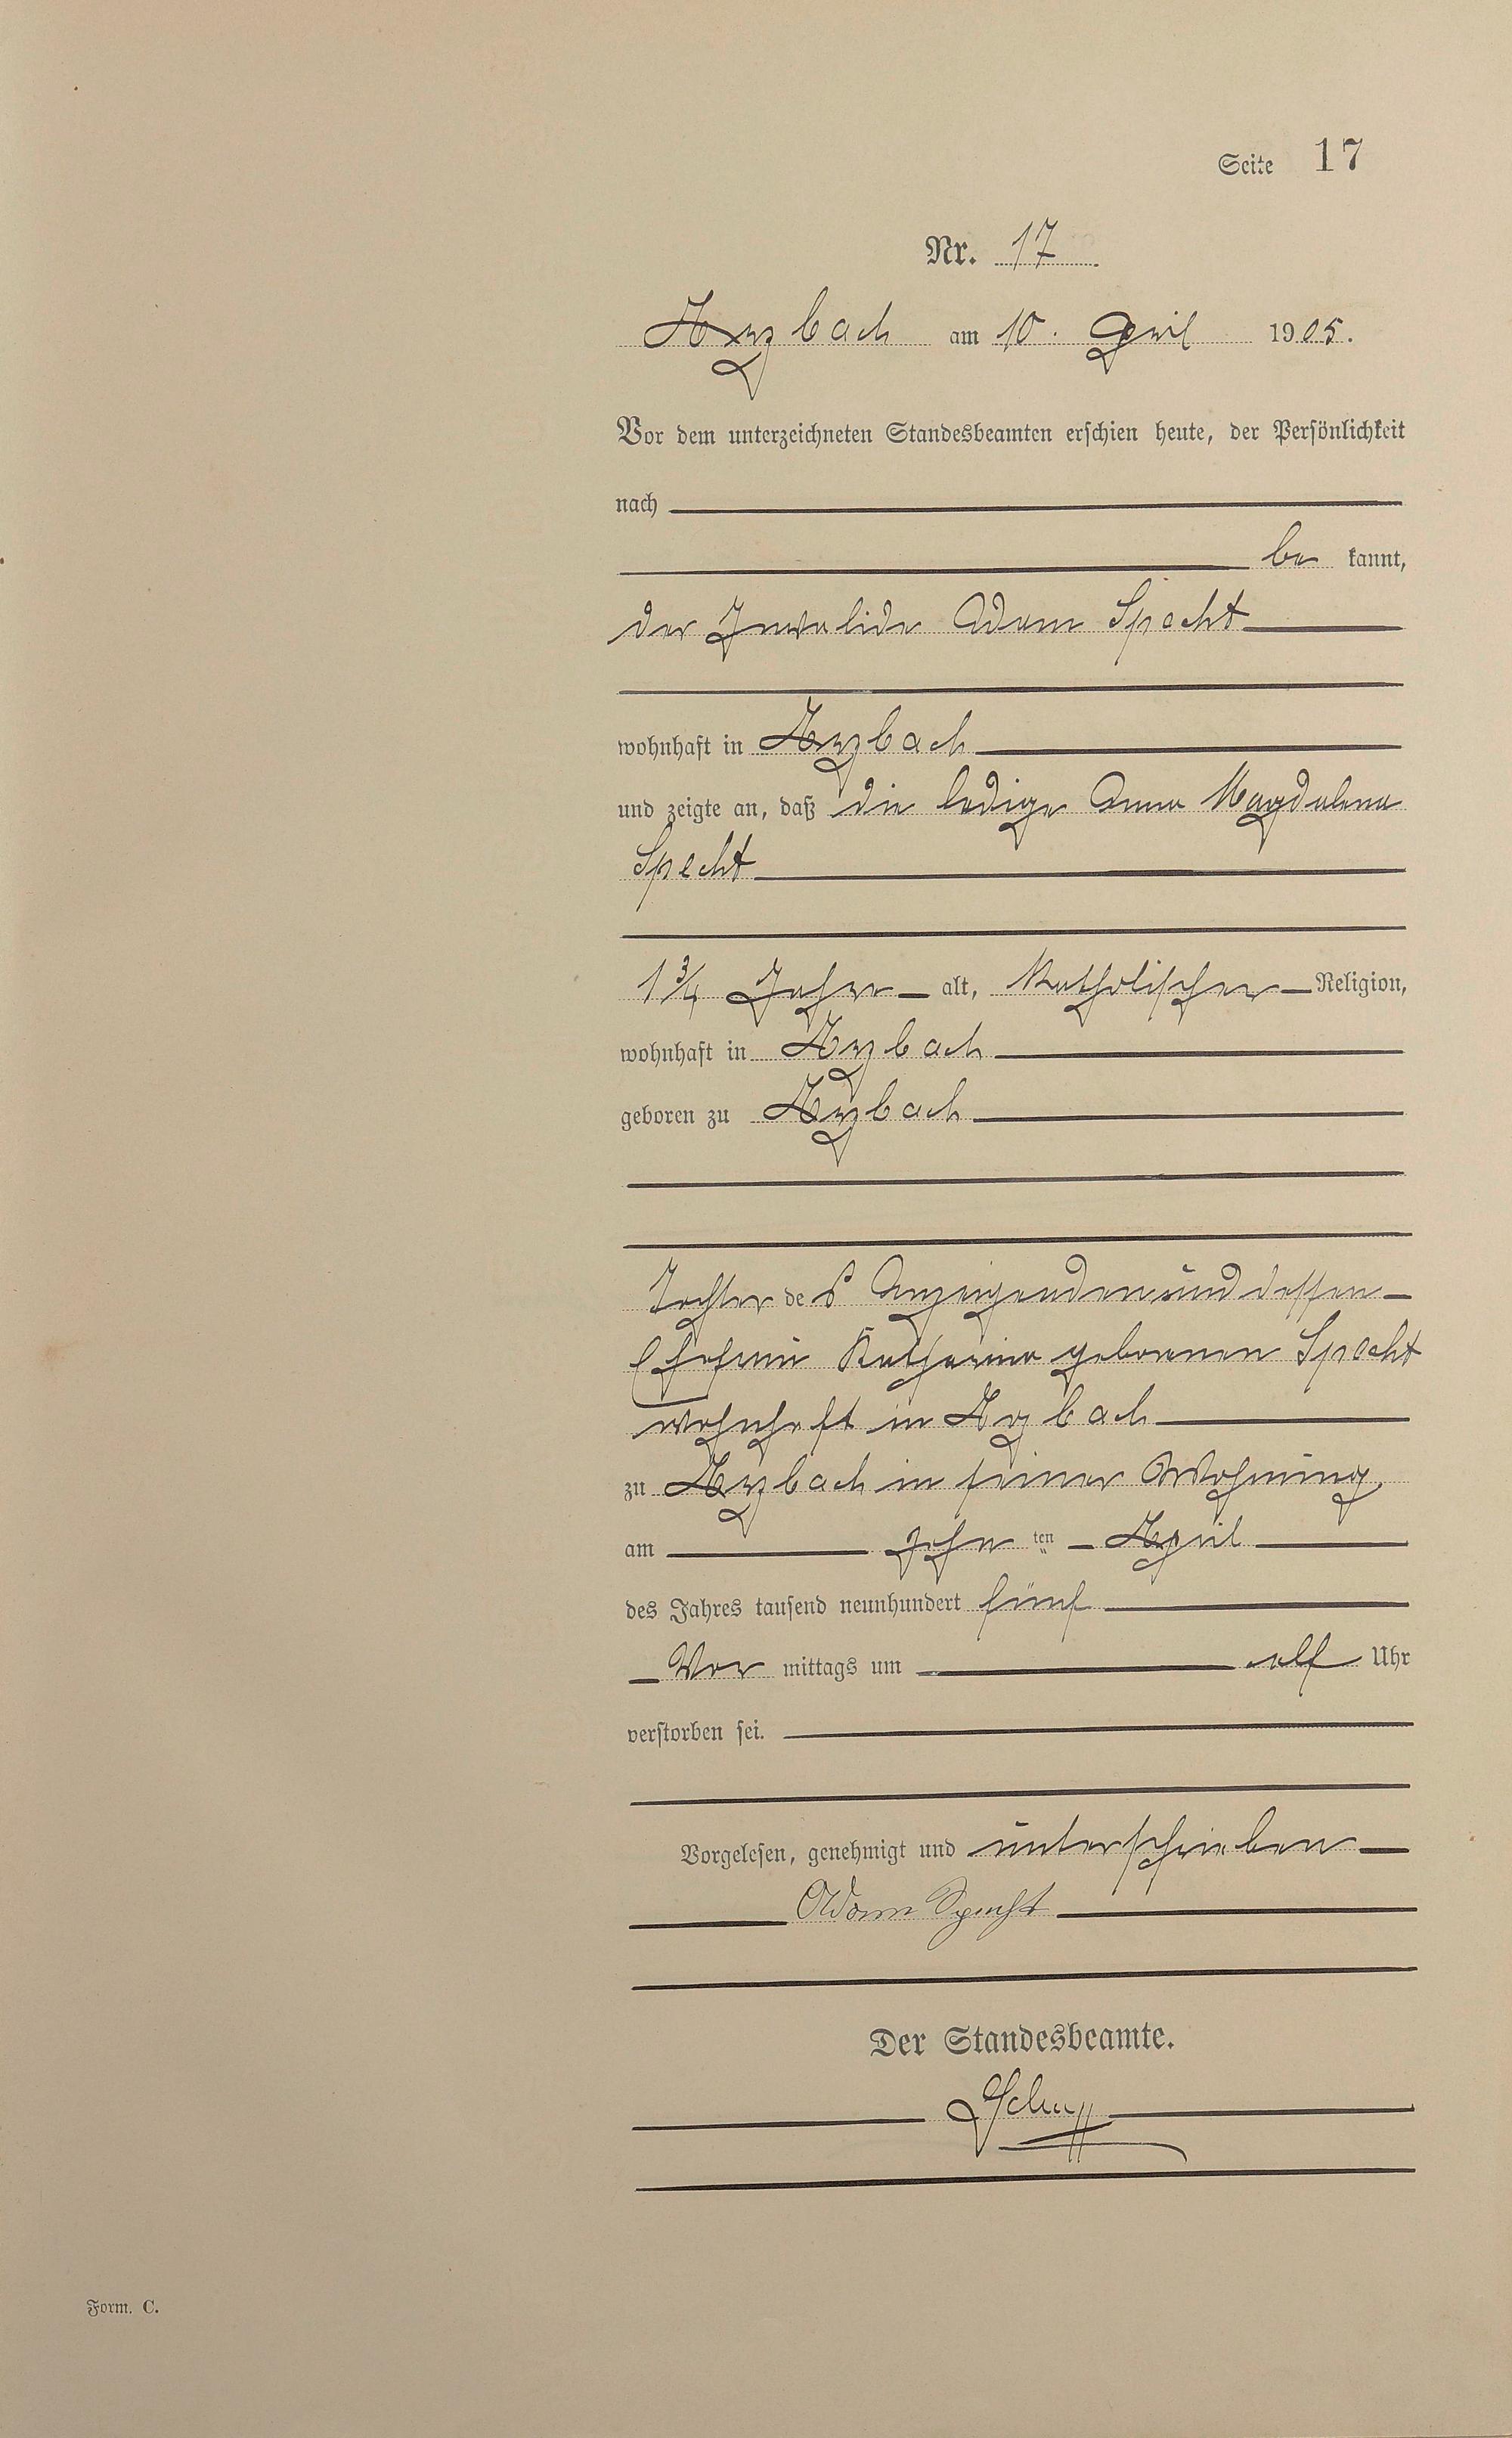 Seite 17
Nr. 17
Arzbach am 10. April 1905.
Vor dem unterzeichneten Standesbeamten erschien heute, der Persönlichkeit
nach
be kannt,
der Invalide Adam Specht
wohnhaft in Arzbach
und zeigte an, daß die ledige Anna Magdalena
Specht
1 3/4 Jahre alt, katholischer Religion,
wohnhaft in Arzbach
geboren zu Arzbach
Tochter des Anzeigenden und dessen
Ehefrau Katharina geborenen Specht
wohnhaft in Arzbach
zu Arzbach in seiner Wohnung
am zehn ten April
des Jahres tausend neunhundert fünf
Vor mittags um elf Uhr
verstorben sei.
Vorgelesen, genehmigt und unterschrieben
Adam Specht
Der Standesbeamte.
Form. C.